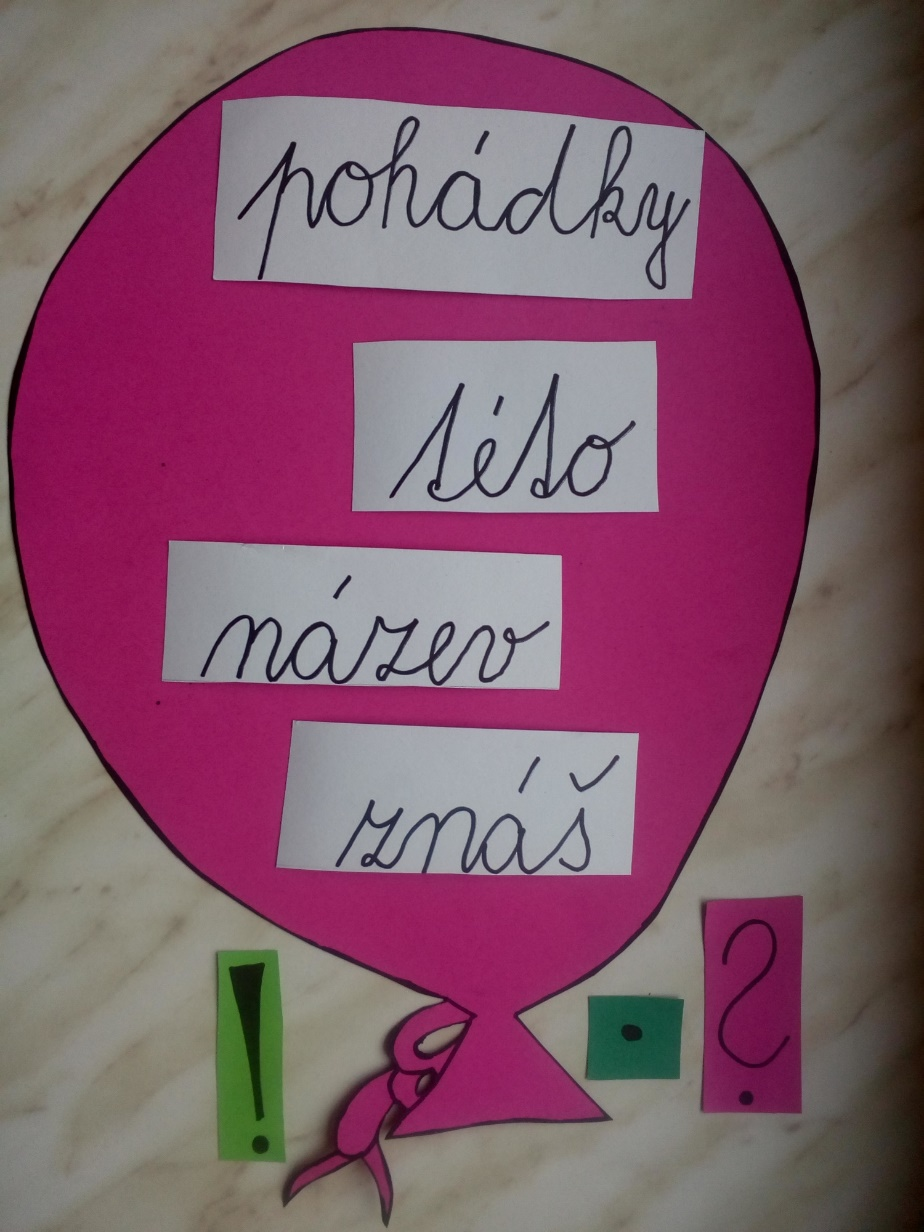 pohádky
této
název
znáš
! . ?